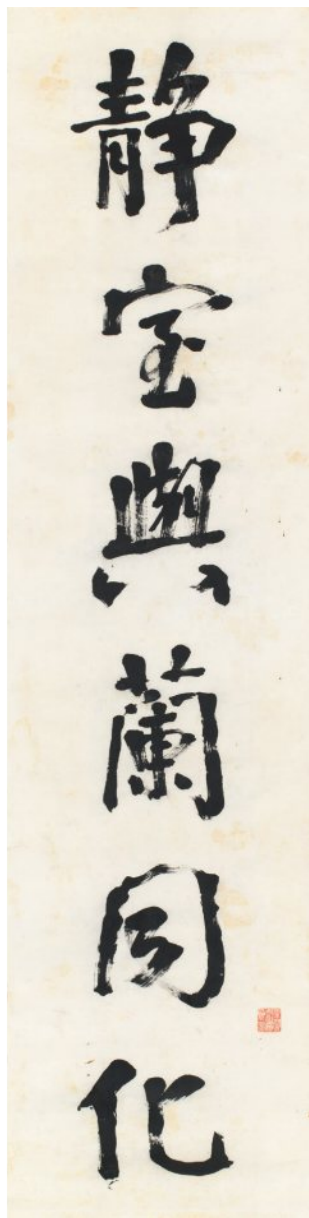 静室與蘭同化